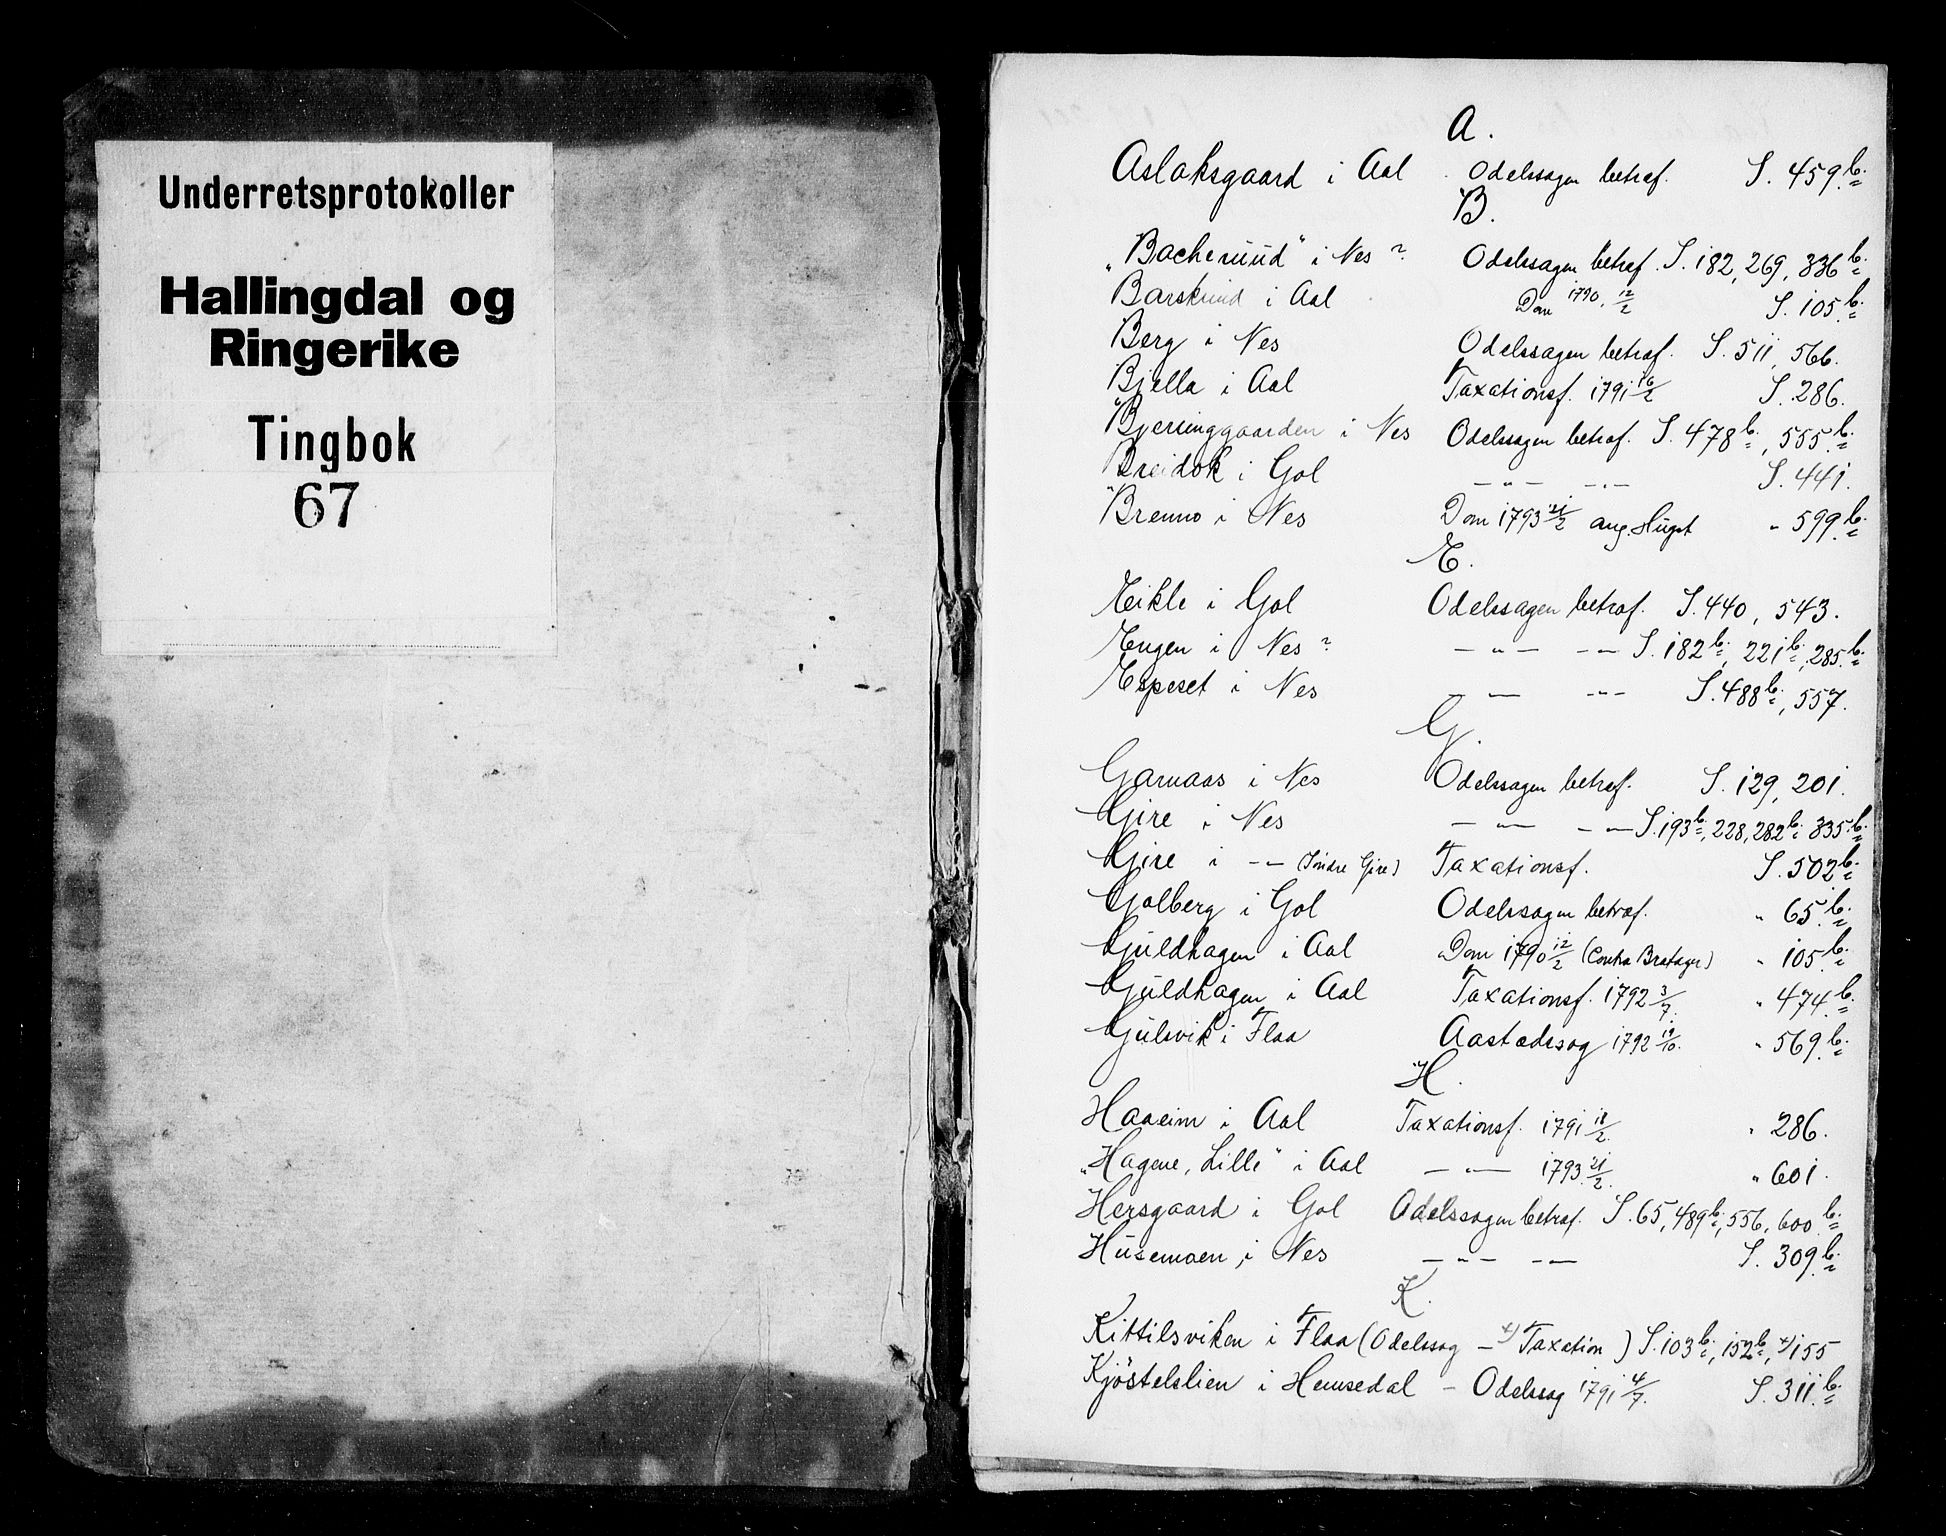 Underretsprotokoller
Hallingdal og
Ringerike
Tingbok
67
A.
Aslaksgaard i Aal Odelssagen betræf. S. 459 b.
B.
"Bacherund" i Nes ? Odelssagen betræf. S. 182, 269, 336 b.
Barskrud i Aal Dom 1790 12/2 S. 105 b.
Berg i Nes Odelssagen betræf. S. 511, 566.
Bjella i Aal Taxationsf. 1791 16/2 S. 286.
Bjerringgaarden i Nes Odelssagen betræf. S. 478 b., 555 b.
Breidok i Gol — " — — " — S. 441.
Brenno i Nes Dom 1793 21/2 ang. Hugst " 599 b.
E.
Eikle i Gol Odelssagen betræf. S. 440, 543.
Engen i Nes ? — " — — " — S. 182 b., 221 b., 285 b.
Espeset i Nes — " — — " — S. 488 b., 557.
G.
Garnaas i Nes Odelssagen betræf. S. 129, 201.
Gire i Nes — " — — " — S. 193 b., 228, 282 b., 335 b.
Gire i — " — (Indre Gire) Taxationsf. S. 502 b.
Golberg i Gol Odelssagen betræf. " 65 b.
Guldhagen i Aal Dom 1790 12/2 (Contra Bratager) " 105 b.
Guldhagen i Aal Taxationsf. 1792 3/7. " 474 b.
Gulsvik i Flaa Aastædssag 1792 19/10. " 569 b.
H.
Haaeim i Aal Taxationsf. 1791 18/2. " 286.
"Hagene, Lille" i Aal — " — 1793 21/2. " 601.
Hersgaard i Gol Odelssagen betræf. S. 65, 489 b., 556, 600 b.
Husemoen i Nes — " — — " — S. 309 b.
K.
Kittilsviken i Flaa (Odelssag — x) Taxation) S. 103 b., 152 b., x) 155
Kjöstelslien i Hemsedal — Odelssag 1791 4/7. S. 311 b.